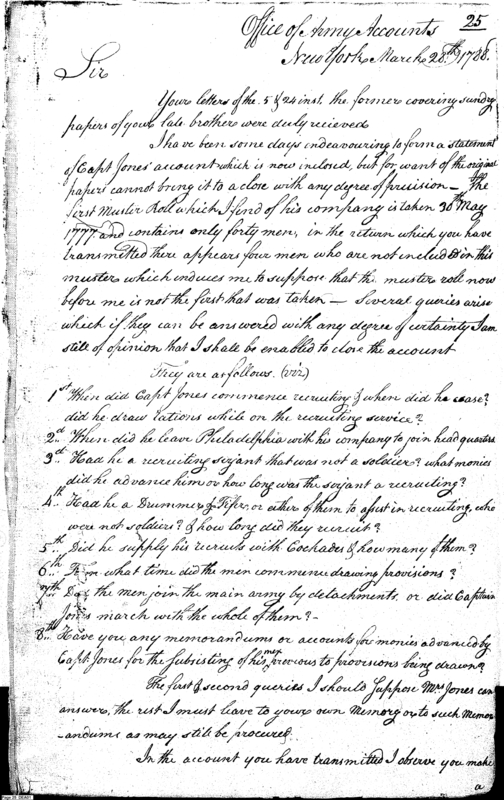 25
Office of Army Accounts
New York March 28th 1788.
Sir
Your letters of the 5 & 24 inst. the former covering sundry
papers of your late brother were duly recieved
I have been some days endeavouring to form a statement
of Capt Jones' account which is now inclosed, but for want of the original
papers cannot bring it to a close with any degree of precision — The
first Muster Roll which I find of his company is taken 30th May
1777 and contains only forty men, in the return which you have
transmitted there appears four men who are not included in this
muster which induces me to suppose that the muster roll now
before me is not the first that was taken — Several queries arise
which if they can be answered with any degree of certainty I am
still of opinion that I shall be enabled to close the account
They are as follows. (viz)
1st When did Capt Jones commence recruiting & when did he cease?
did he draw rations while on the recruiting service?
2d. When did he leave Philadelphia with his company to join head quarters
3d. Had he a recruiting serjant that was not a soldier? what monies
did he advance him or how long was the serjant a recruiting?
4th Had he a Drummer & Fifer, or either of them to assist in recruiting, who
were not soldiers? & how long did they recruit?
5th Did he supply his recruits with Cockades & how many of them?
6th From what time did the men commence drawing provisions?
7th Did the men join the main army by detachments, or did Captain
Jones march with the whole of them? -
8th Have you any memorandums or accounts for monies advanced by
Capt. Jones for the subsisting of his men previous to provisions being drawn?
The first & second queries I should suppose Mrs Jones can
answer, the rest I must leave to your own Memory or to such Memor
-andums as may still be procured.
In the account you have transmitted I observe you make
a